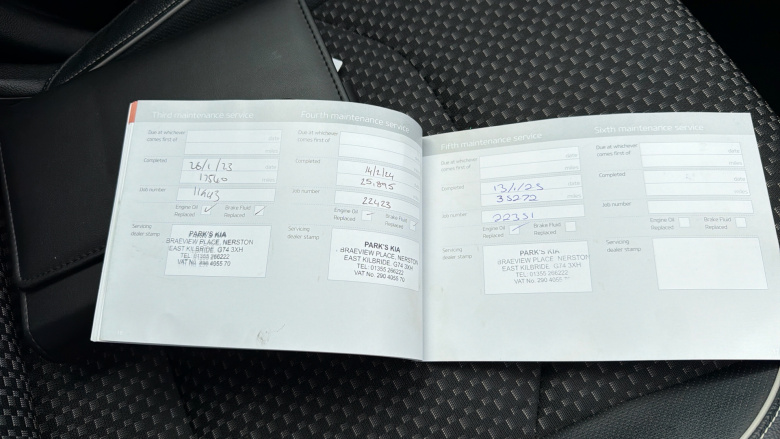 Third maintenance service
Due at whichever
comes first of
date
miles
Completed
26/1/23
date
17540
miles
Job number
11443
Engine Oil
Replaced
Brake Fluid
Replaced
Servicing
dealer stamp
PARK'S KIA
BRAEVIEW PLACE, NERSTON
EAST KILBRIDE G74 3XH
TEL: 01355 266222
VAT No. 290 4055 70
Fourth maintenance service
Due at whichever
comes first of
date
miles
Completed
14/2/24
date
25,895
miles
Job number
22423
Engine Oil
Replaced
Brake Fluid
Replaced
Servicing
dealer stamp
PARK'S KIA
BRAEVIEW PLACE, NERSTON
EAST KILBRIDE, G74 3XH
TEL: 01355 266222
VAT No. 290 4055 70
Fifth maintenance service
Due at whichever
comes first of
date
miles
Completed
13/1/25
date
33272
miles
Job number
22331
Engine Oil
Replaced
Brake Fluid
Replaced
Servicing
dealer stamp
PARK'S KIA
BRAEVIEW PLACE, NERSTON
EAST KILBRIDE G74 3XH
TEL: 01355 266222
VAT No. 290 4055
Sixth maintenance service
Due at whichever
comes first of
date
miles
Completed
date
miles
Job number
Engine Oil
Replaced
Brake Fluid
Replaced
Servicing
dealer stamp